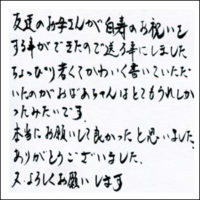 友達のお母さんが白寿のお祝いを
する事ができたので送る事にしました
ちょっぴり若くてかわいく書いていただ
いたのがおばあちゃんはとてもうれしか
ったみたいです.
本当にお願いして良かったと思いました.
ありがとうございました.
又、よろしくお願いします